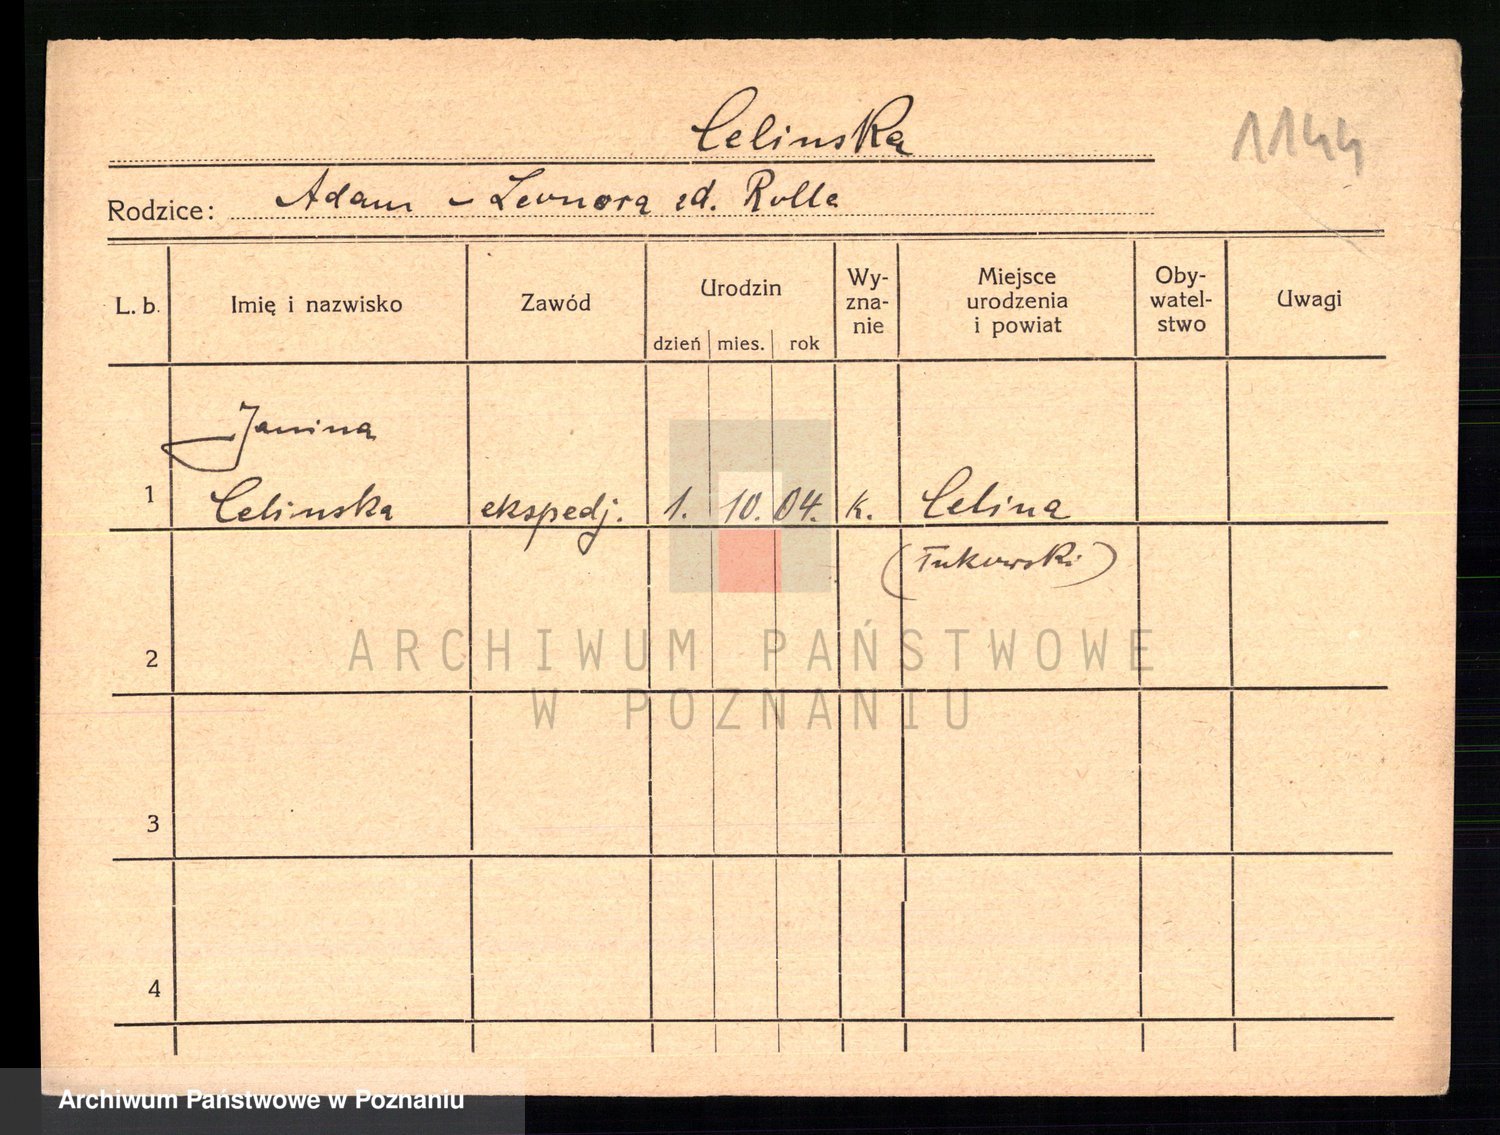 Celinska
1144
Rodzice: Adam – Leonora zd. Rolle
L. b. Imię i nazwisko Zawód Urodzin dzień mies. rok Wy-zna-nie Miejsce urodzenia i powiat Oby-watel-stwo Uwagi
Janina
1 Celinska ekspedj. 1. 10. 04. k. Celina
(Łukowski)
2
ARCHIWUM PAŃSTWOWE
W POZNANIU
3
4
Archiwum Państwowe w Poznaniu